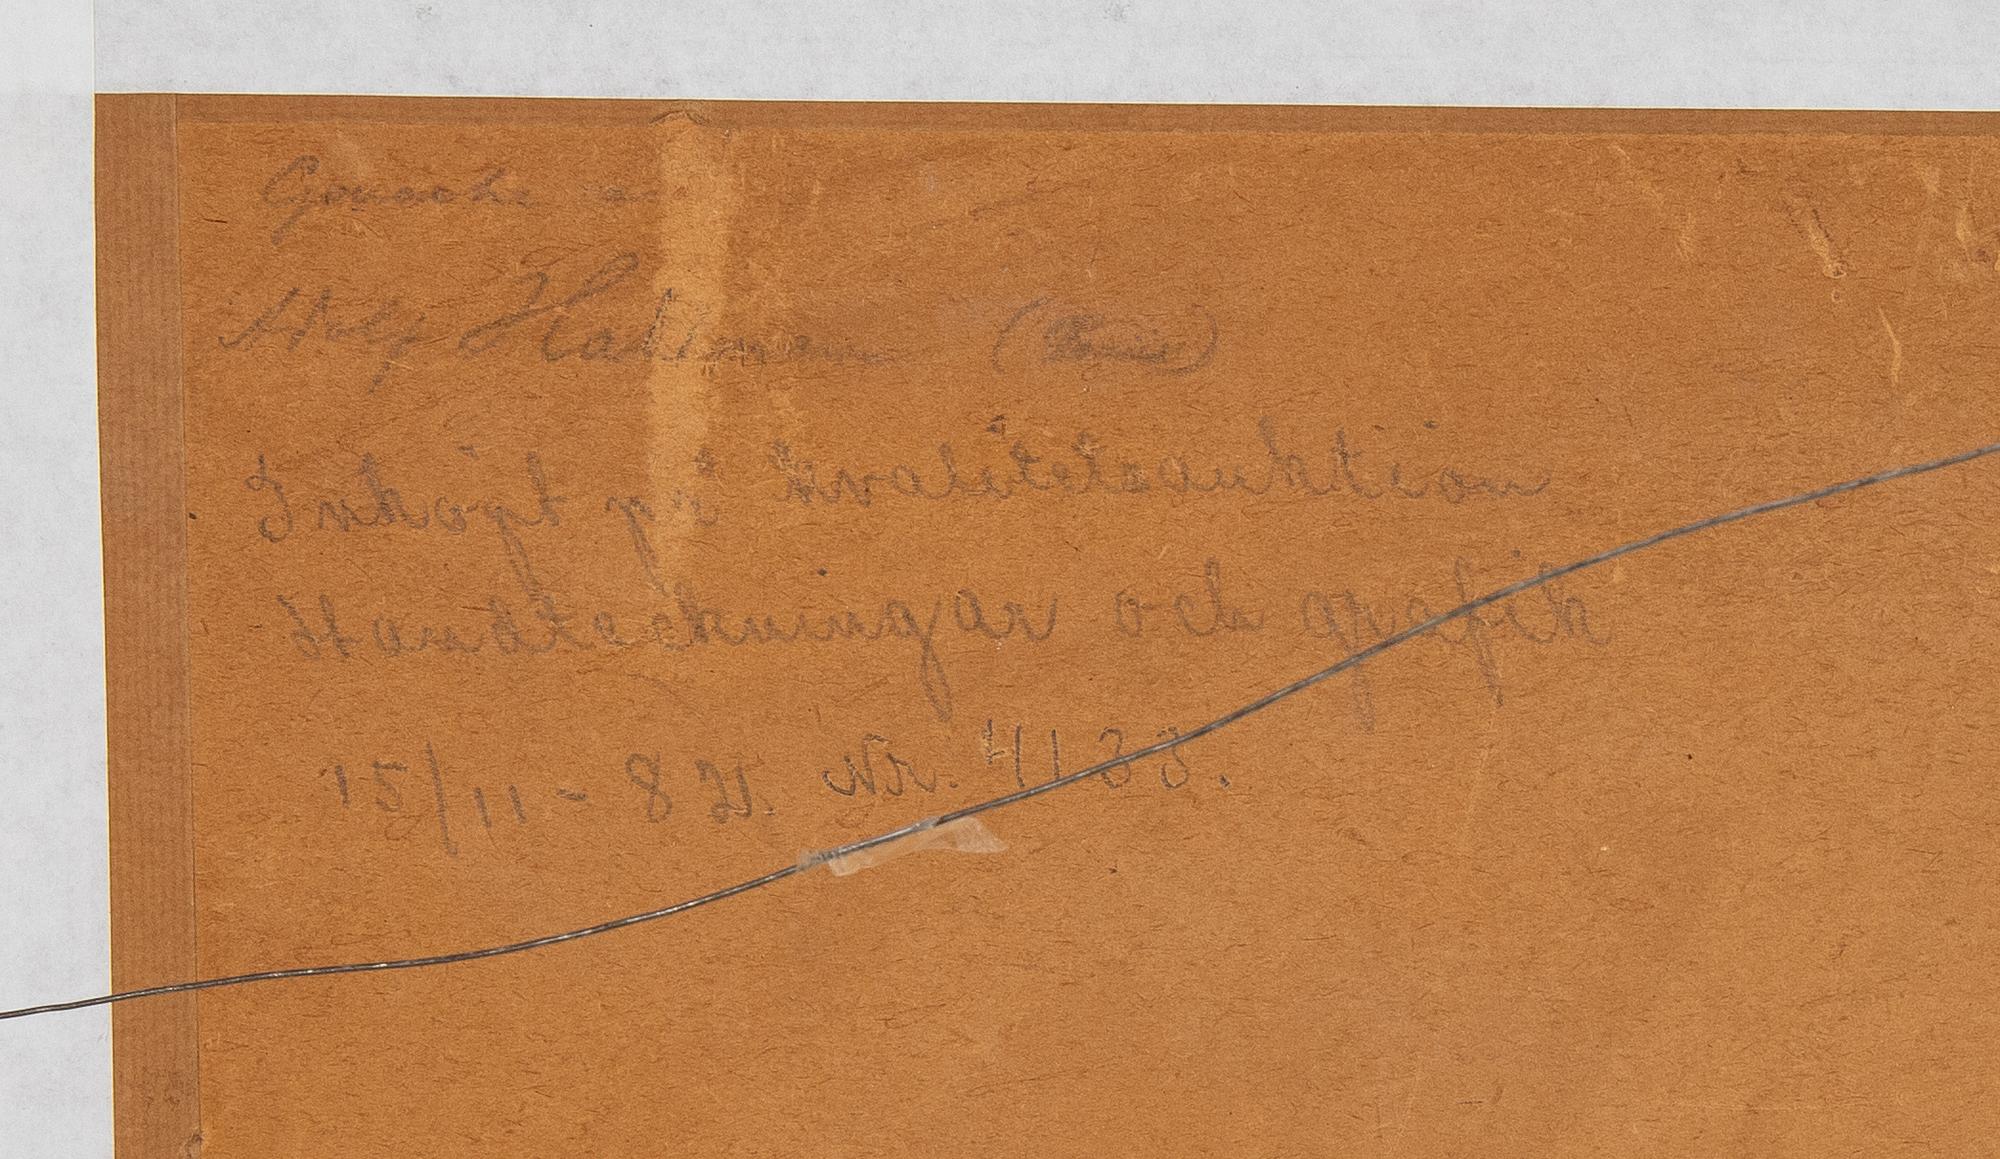 Gouache av
Hahnman (Paris)
Inköpt på kvalitetsauktion
Handteckningar och grafik
15/11 - 82. Nr. 4133.